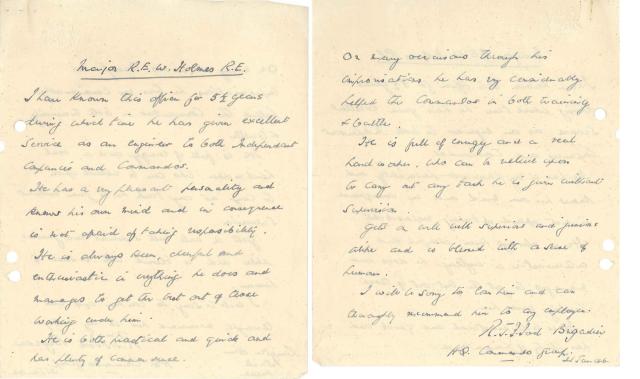 Major R.E.W. Holmes R.E.
I have known this officer for 5½ years
during which time he has given excellent
service as an engineer to both Independent
Companies and Commandos.
He has a very pleasant personality and
knows his own mind and in consequence
is not afraid of taking responsibility.
He is always keen, cheerful and
enthusiastic in anything he does and
manages to get the best out of those
working under him.
He is both practical and quick and
has plenty of common sense.
On many occasions through his
improvisations he has very considerably
helped the Commandos in both training
& battle.
He is full of energy and a real
hard worker, who can be relied upon
to carry out any task he is given without
supervision.
Gets on well with superiors and juniors
alike and is blessed with a sense of
humour.
I will be sorry to lose him and can
thoroughly recommend him to any employer.
Brigadier
HQ. Commando Group.